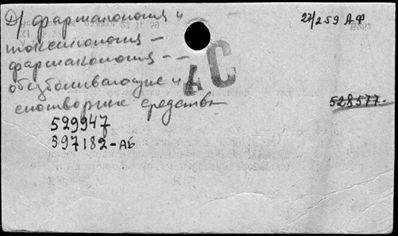 Д/ фармакология и
токсикология —
фармакология — —
обезболивающие и
снотворные средства
27/259 АФ
АС
528577.
529947
597182-АБ